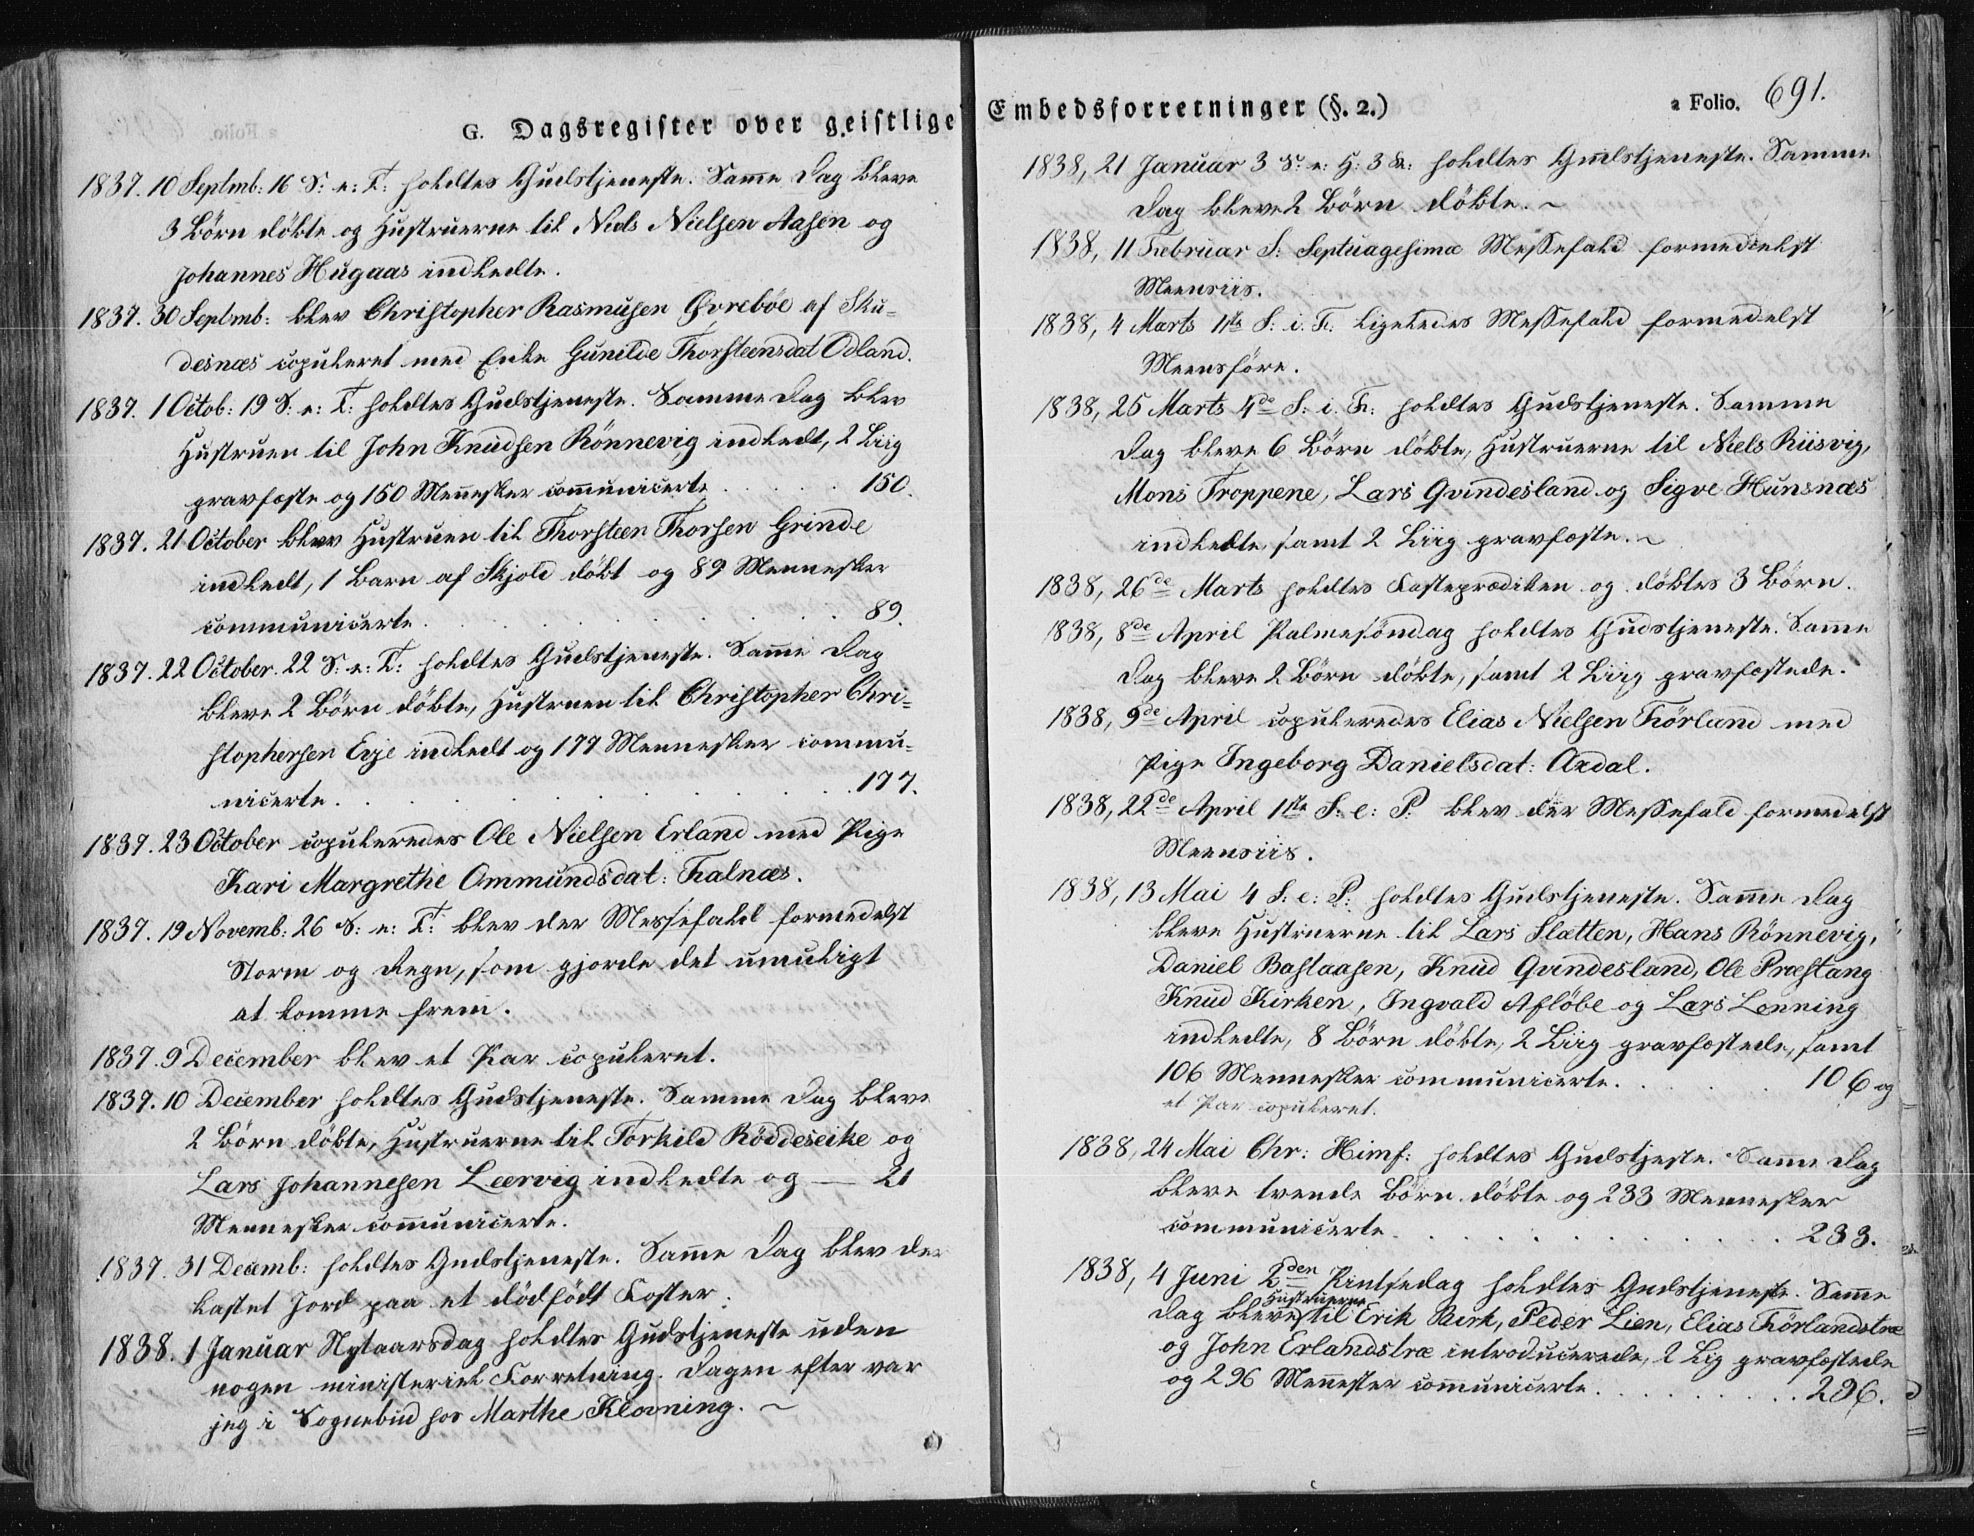 G. Dagsregister over geistlige
1837. 10 Septmb: 16 S: e: T: holdtes Gudstjeneste. Samme Dag bleve
3 Börn döbte og Hustruerne til Niels Nielsen Aasen og
Johannes Hugaas indledte.
1837. 30 Septmb: blev Christopher Rasmusen Øvreböe af Sku=
desnæs copuleret med Enke Gunilde Thorsteensdat Odland.
1837. 1 Octob: 19 S: e: T: holdtes Gudstjeneste. Samme Dag blev
Hustruen til John Knudsen Rönnevig indledt, 2 Liig
gravfæste og 150 Mennesker communicerte . . . . . 150.
1837. 21 October blev Hustruen til Thorsteen Thorsen Grinde
indledt, 1 Barn af Skjold döbt og 89 Mennesker
communicerte . . . . . . 89.
1837. 22 October. 22 S: e: T: holdtes Gudstjeneste. Samme Dag
bleve 2 Börn döbte, Hustruen til Christopher Chri=
stophersen Erje indledt og 177 Mennesker commu=
nicerte . . . . . . . . . 177.
1837. 23 October copuleredes Ole Nielsen Erland med Pige
Kari Margrethe Ommundsdat: Falnæs.
1837. 19 Novemb: 26 S: e: T: blev der Messefald formedelst
Storm og Regn, som gjorde det umuligt
at komme frem.
1837. 9 December blev et Par copuleret.
1837. 10 December holdtes Gudstjeneste. Samme Dag bleve
2 Börn döbte, Hustruerne til Torkild Röddeseike og
Lars Johannesen Leervig indledte og — 21
Mennesker communicerte.
1837. 31 Decemb: holdtes Gudstjeneste. Samme Dag blev der
kastet Jord paa et dödfödt Foster.
1838. 1 Januar Nytaarsdag holdtes Gudstjeneste uden
nogen ministeriel Forretning. Dagen efter var
jeg i Sognebud hos Marthe Klovning. ~
Embedsforretninger (§. 2.)
a Folio. 691.
1838, 21 Januar 3 S: e: H: 3 K: holdtes Gudstjeneste. Samme
Dag bleve 2 Börn döbte. ~
1838, 11 Februar S: Septuagesimæ Messefald formedelst
Meensiis.
1838, 4 Marts 1ste S: i. F: Ligeledes Messefald formedelst
Meensföre.
1838, 25 Marts 4de S: i. F: holdtes Gudstjeneste. Samme
Dag bleve 6 Börn döbte, Hustruerne til Niels Riisvig,
Mons Troppene, Lars Qvindesland og Sigve Hunsnæs
indledte, samt 2 Liig gravfæste. ~
1838, 26de Marts holdtes Fasteprædiken og döbtes 3 Börn.
1838, 8de April Palmesöndag holdtes Gudstjeneste. Samme
Dag bleve 2 Börn döbte, samt 2 Liig gravfæstede.
1838, 9de April copuleredes Elias Nielsen Förland med
Pige Ingeborg Danielsdat: Axdal.
1838, 22de April 1ste S: e: P: blev der Messefald formedelst
Meensiis.
1838, 13 Mai 4 S: e: P: holdtes Gudstjeneste. Samme Dag
bleve Hustruerne til Lars Slætten, Hans Rönnevig,
Daniel Bastaasen, Knud Qvindesland, Ole Præstang
Knud Kirken, Ingvald Aflöbe og Lars Lönning
indledte, 8 Börn döbte, 2 Liig gravfæstede, samt
106 Mennesker communicerte. . . . . . 106 og
et Par copuleret.
1838, 24 Mai Chr: Himf: holdtes Gudstjeste. Samme Dag
bleve tvende Börn döbte og 233 Mennesker
communicerte . . . . . . . . . 233.
1838, 4 Juni 2den Pintsedag holdtes Gudstjeneste. Samme
Dag bleve Hustruerne til Erik Birk, Peder Lien, Elias Förlandstræ
og John Erlandstræ introducerede, 2 Lig gravfæstede
og 296 Mennesker communicerte. . . . . . . . 296.